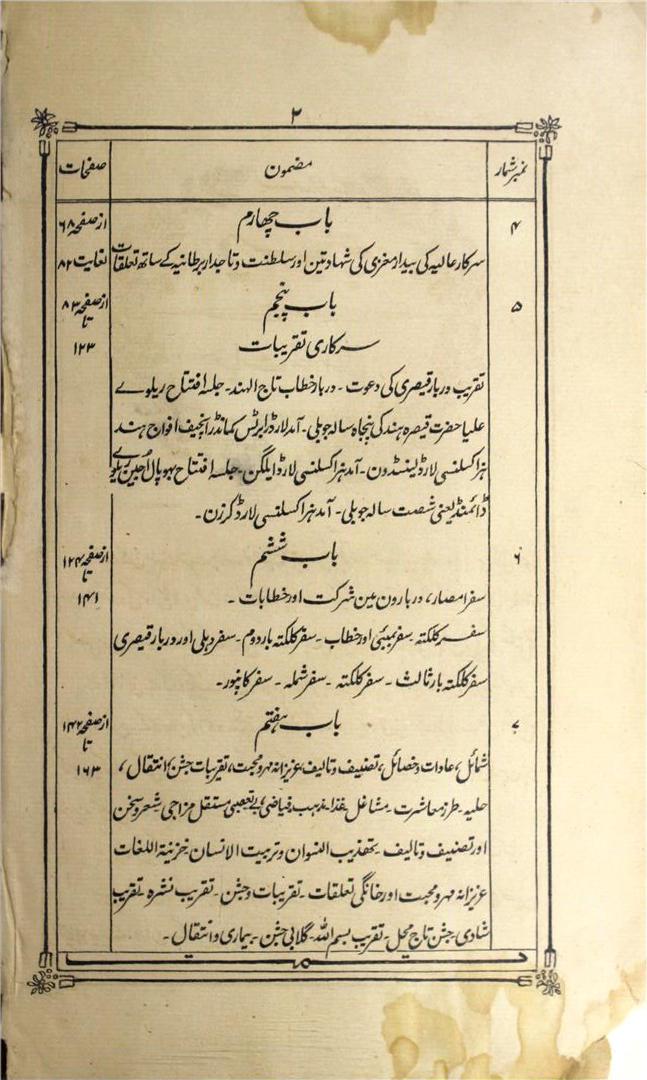 ۲
نمبرشمار مضمون صفحات
۴ باب چهارم ازصفحہ ۶۸
سرکارعالیہ کی بیدارمغزی کی شہادتین اورسلطنت وتاجداربرطانیہ کے ساتھ تعلقات لغایت ۸۲
۵ باب پنجم ازصفحہ ۸۳
تا
سرکاری تقریبات ۱۲۳
تقریب دربارقیصری کی دعوت ۔ دربارخطاب تاج الہند ۔ جلسہ افتتاح ریلوے
علیاحضرت قیصرہ ہندکی پنجاہ سالہ جوبلی ۔ آمدلارڈرابرٹس کمانڈرانچیف افواج ہند
ہزاکسلنسی لارڈلینسڈون ۔ آمدہزاکسلنسی لارڈایلگن ۔ جلسہ افتتاح بھوپال اُجین ریلوے
ڈائمنڈیعنی شصت سالہ جوبلی ۔ آمدہزاکسلنسی لارڈکرزن ۔
۶ باب ششم ازصفحہ ۱۲۴
تا
سفرامصار، دربارون مین شرکت اورخطابات ۔ ۱۴۱
سفرکلکتہ ۔ سفربمبئی اورخطاب ۔ سفرکلکتہ باردوم ۔ سفردہلی اوردربارقیصری
سفرکلکتہ بارثالث ۔ سفرکلکتہ ۔ سفرشملہ ۔ سفرکانپور ۔
۷ باب ہفتم ازصفحہ ۱۴۲
تا
شمائل، عادات وخصائل، تصنیف وتالیف، عزیزانہ مہرومحبت، تقریبات جشن، انتقال، ۱۶۳
حلیہ ۔ طرزمعاشرت ۔ مشاغل ۔ غذا ۔ مذہب ۔ فیاضی، بےتعصبی مستقل مزاجی شعروسخن
اورتصنیف وتالیف ۔ تہذیب النسوان وتربیت الانسان ۔ خزنیۃ اللغات
عزیزانہ مہرومحبت اورخانگی تعلقات ۔ تقریبات وجشن ۔ تقریب نشرہ ۔ تقریب
شادی ۔ جشن تاج محل ۔ تقریب بسم اللہ ۔ گلابی جشن ۔ بیماری وانتقال ۔
تمت